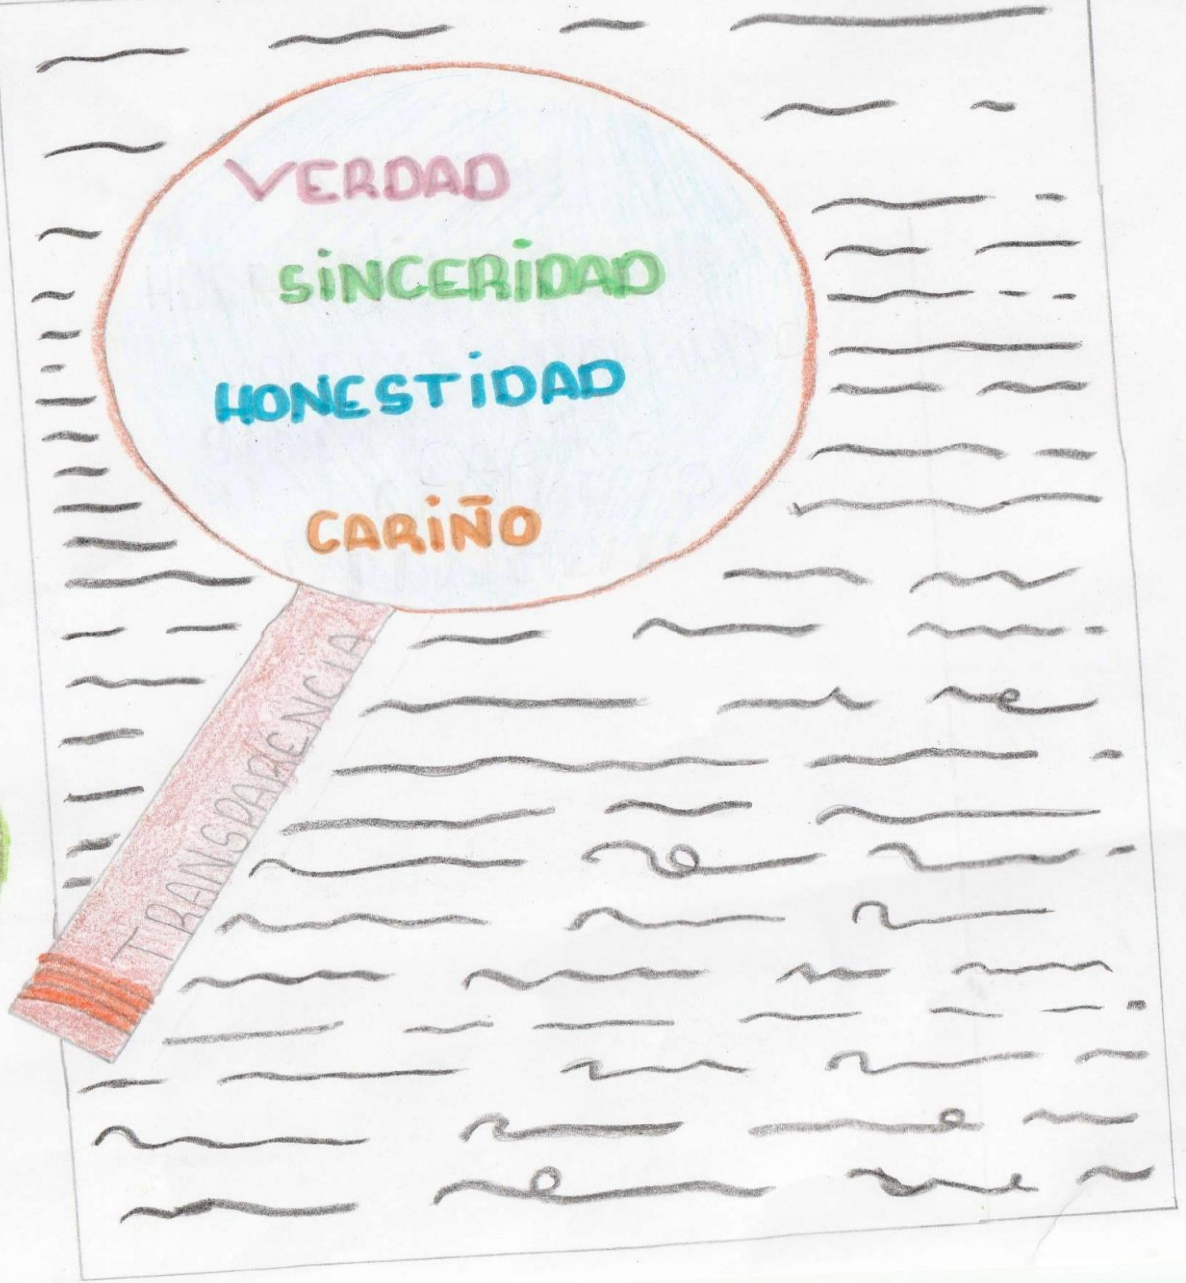 VERDAD
SINCERIDAD
HONESTIDAD
CARIÑO
TRANSPARENCIA